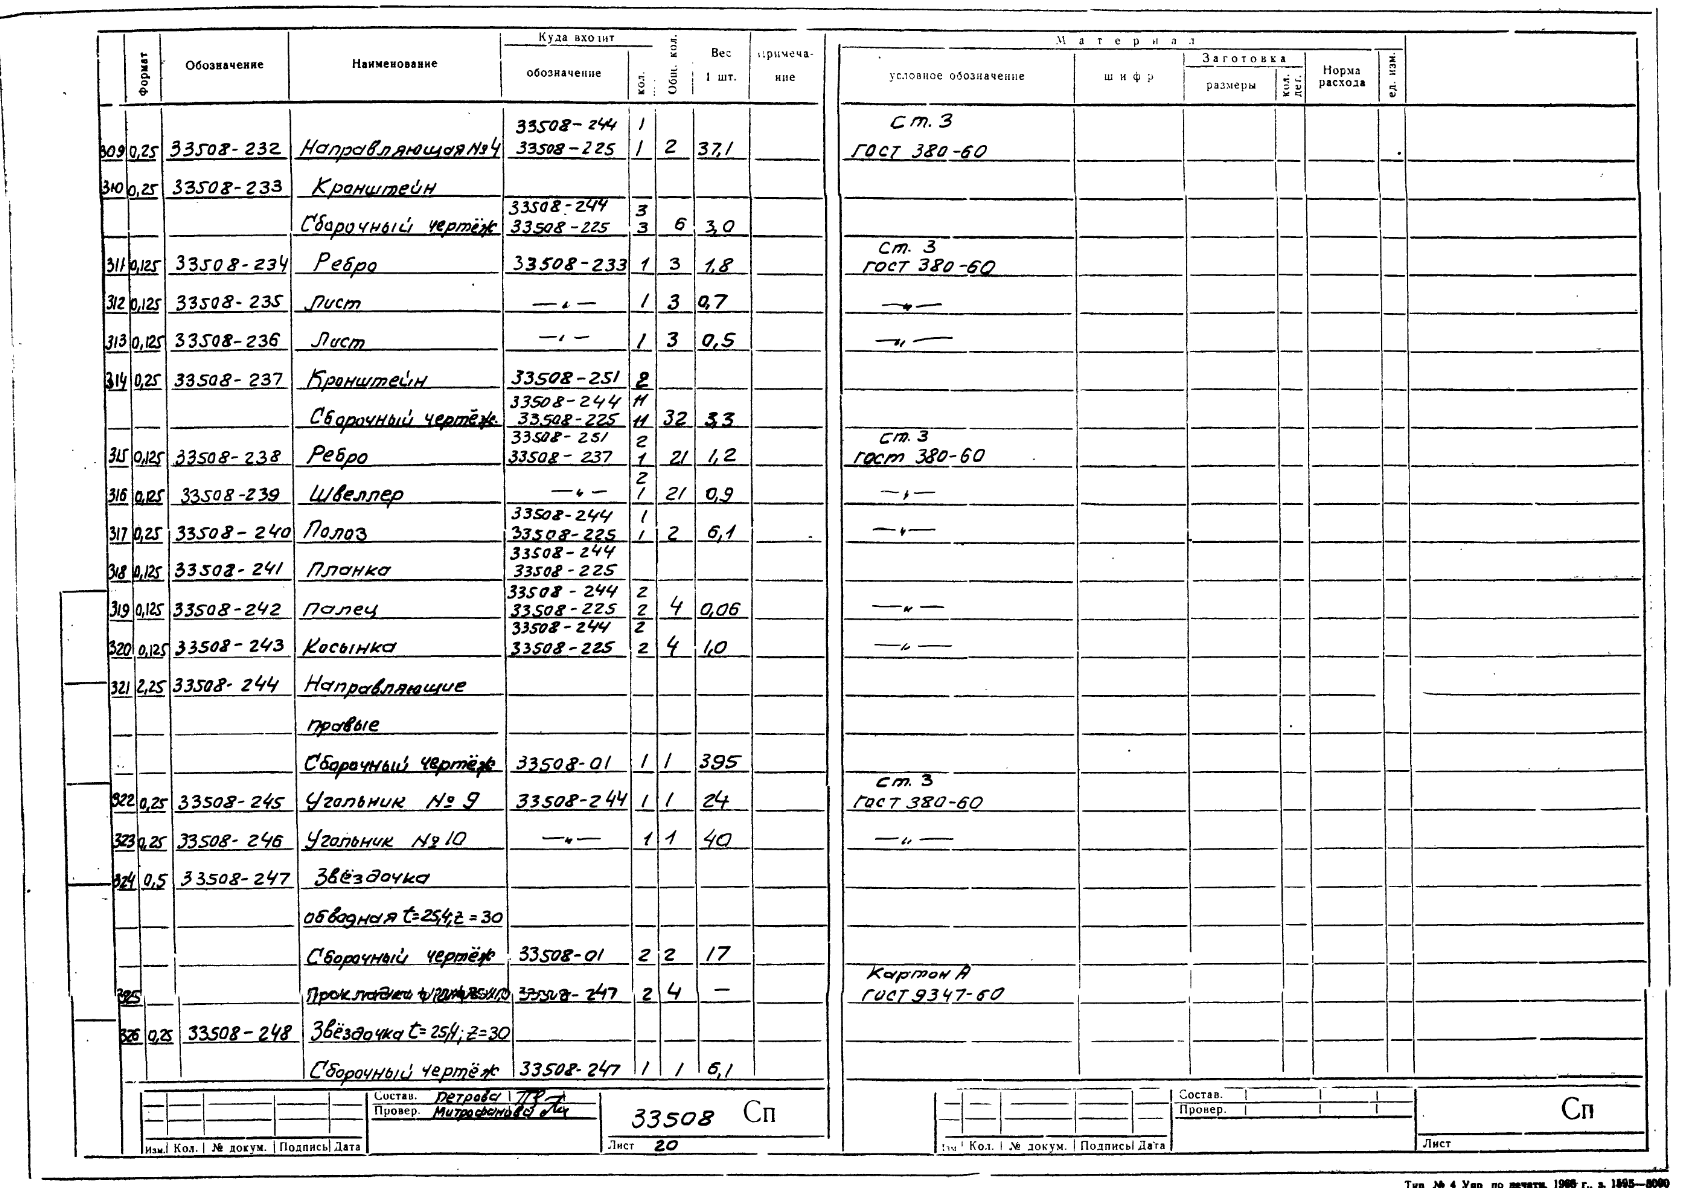 Формат Обозначение Наименование Куда входит обозначение кол. Общ. кол. Вес 1 шт. Примеча-ние Материал условное обозначение шифр Заготовка размеры кол. дет. Норма расхода ед. изм.
33508-244 1 Ст. 3
309 0,25 33508-232 Направляющая №4 33508-225 1 2 37,1 ГОСТ 380-60
310 0,25 33508-233 Кронштейн
33508-244 3
Сборочный чертёж 33508-225 3 6 3,0
Ст. 3
311 0,125 33508-234 Ребро 33508-233 1 3 1,8 ГОСТ 380-60
312 0,125 33508-235 Лист —"— 1 3 0,7 —"—
313 0,125 33508-236 Лист —"— 1 3 0,5 —"—
314 0,25 33508-237 Кронштейн 33508-251 2
33508-244 11
Сборочный чертёж. 33508-225 11 32 3,3
33508-251 2 Ст. 3
315 0,125 33508-238 Ребро 33508-237 1 21 1,2 гост 380-60
2
316 0,125 33508-239 Швеллер —"— 1 21 0,9 —"—
33508-244 1
317 0,25 33508-240 Полоз 33508-225 1 2 6,1 —"—
33508-244
318 0,125 33508-241 Планка 33508-225
33508-244 2
319 0,125 33508-242 Палец 33508-225 2 4 0,06 —"—
33508-244 2
320 0,125 33508-243 Косынка 33508-225 2 4 1,0 —"—
321 2,25 33508-244 Направляющие
правые
Сборочный чертёж 33508-01 1 1 395
Ст. 3
322 0,25 33508-245 Угольник №9 33508-244 1 1 24 ГОСТ 380-60
323 0,25 33508-246 Угольник №10 —"— 1 1 40 —"—
324 0,5 33508-247 Звёздочка
обводная t=25,4; z=30
Сборочный чертёж 33508-01 2 2 17
Картон А
325 Прокладка 33508-247 2 4 — ГОСТ 9347-60
326 0,25 33508-248 Звёздочка t=25,4; z=30
Сборочный чертёж 33508-247 1 1 6,1
Состав. Петрова
Провер. Митрофанова
33508 Сп
Изм. Кол. № докум. Подпись Дата
Лист 20
Состав.
Провер.
Сп
Изм Кол. № докум. Подпись Дата
Лист
Тип. № 4 Упр. по печати, 1966 г., з. 1595—8000